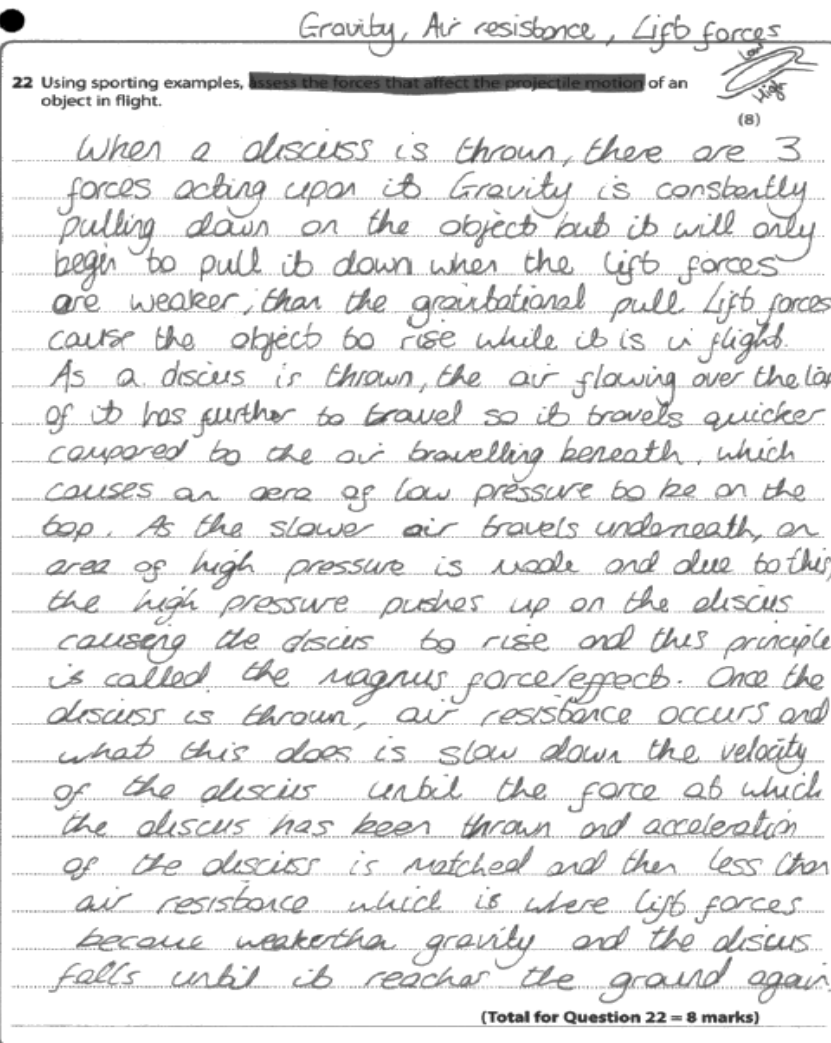 Gravity, Air resistance, Lift forces
22 Using sporting examples, assess the forces that affect the projectile motion of an
object in flight.
Low
High
(8)
When a discuss is thrown, there are 3
forces acting upon it. Gravity is constantly
pulling down on the object but it will only
begin to pull it down when the lift forces
are weaker, than the gravitational pull. Lift forces
cause the object to rise while it is in flight.
As a discus is thrown, the air flowing over the top
of it has further to travel so it travels quicker
compared to the air travelling beneath, which
causes an aera of low pressure to be on the
top. As the slower air travels underneath, an
area of high pressure is made and due to this,
the high pressure pushes up on the discus
causeng the discus to rise and this principle
is called the magnus force/effect. Once the
discuss is thrown, air resistance occurs and
what this does is slow down the velocity
of the discus until the force at which
the discus has been thrown and acceleration
of the discuss is matched and then less than
air resistance which is where lift forces
become weaker than gravity and the discus
falls until it reaches the ground again.
(Total for Question 22 = 8 marks)